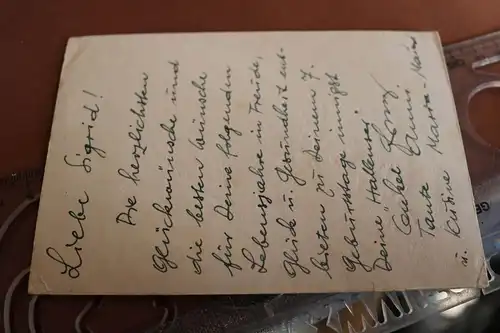 Liebe Sigrid!
Die herzlichsten
Glückwünsche und
die besten Wünsche
für Deine folgenden
Lebensjahre in Freude,
Glück u. Gesundheit ent-
bieten zu Deinem 7.
Geburtstage innigst
Deine Hallenser
Onkel
Tante Anni
u. Kusine Marra-Maria